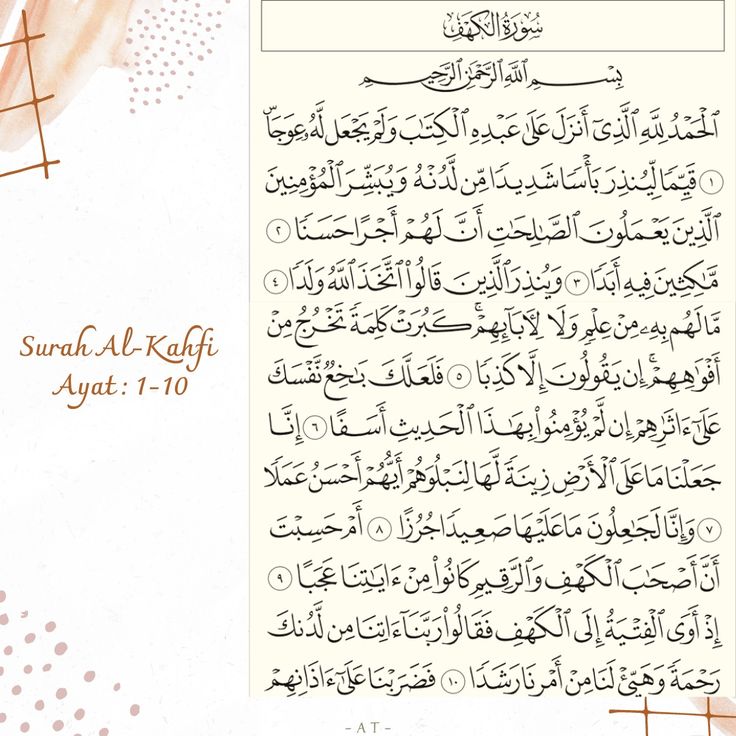 سُورَةُ الكَهْفِ
بِسْمِ ٱللَّهِ ٱلرَّحْمَٰنِ ٱلرَّحِيمِ
ٱلْحَمْدُ لِلَّهِ ٱلَّذِىٓ أَنزَلَ عَلَىٰ عَبْدِهِ ٱلْكِتَٰبَ وَلَمْ يَجْعَل لَّهُۥ عِوَجَاۜ
١ قَيِّمًا لِّيُنذِرَ بَأْسًا شَدِيدًا مِّن لَّدُنْهُ وَيُبَشِّرَ ٱلْمُؤْمِنِينَ
ٱلَّذِينَ يَعْمَلُونَ ٱلصَّٰلِحَٰتِ أَنَّ لَهُمْ أَجْرًا حَسَنًا ٢
مَّٰكِثِينَ فِيهِ أَبَدًا ٣ وَيُنذِرَ ٱلَّذِينَ قَالُوا۟ ٱتَّخَذَ ٱللَّهُ وَلَدًا ٤
مَّا لَهُم بِهِۦ مِنْ عِلْمٍ وَلَا لِءَابَآئِهِمْ ۚ كَبُرَتْ كَلِمَةً تَخْرُجُ مِنْ
أَفْوَٰهِهِمْ ۚ إِن يَقُولُونَ إِلَّا كَذِبًا ٥ فَلَعَلَّكَ بَٰخِعٌ نَّفْسَكَ
عَلَىٰٓ ءَاثَٰرِهِمْ إِن لَّمْ يُؤْمِنُوا۟ بِهَٰذَا ٱلْحَدِيثِ أَسَفًا ٦ إِنَّا
جَعَلْنَا مَا عَلَى ٱلْأَرْضِ زِينَةً لَّهَا لِنَبْلُوَهُمْ أَيُّهُمْ أَحْسَنُ عَمَلًا
٧ وَإِنَّا لَجَٰعِلُونَ مَا عَلَيْهَا صَعِيدًا جُرُزًا ٨ أَمْ حَسِبْتَ
أَنَّ أَصْحَٰبَ ٱلْكَهْفِ وَٱلرَّقِيمِ كَانُوا۟ مِنْ ءَايَٰتِنَا عَجَبًا ٩
إِذْ أَوَى ٱلْفِتْيَةُ إِلَى ٱلْكَهْفِ فَقَالُوا۟ رَبَّنَآ ءَاتِنَا مِن لَّدُنكَ
رَحْمَةً وَهَيِّئْ لَنَا مِنْ أَمْرِنَا رَشَدًا ١٠ فَضَرَبْنَا عَلَىٰٓ ءَاذَانِهِمْ
Surah Al-Kahfi
Ayat : 1-10
- A T -